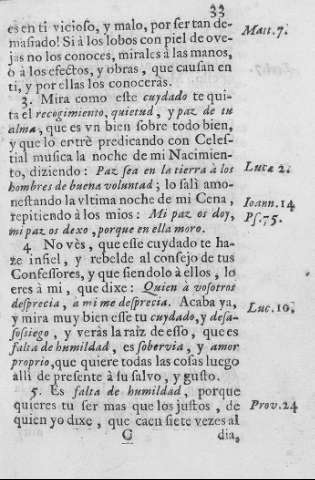 33
es en ti vicioso, y malo, por ser tan de-
masiado! Si à los lobos con piel de ove-
jas no los conoces, mirales à las manos,
ò à los efectos, y obras, que causan en
ti, y por ellas los conoceràs.
Matt. 7.
3. Mira como este cuydado te qui-
ta el recogimiento, quietud, y paz de tu
alma, que es vn bien sobre todo bien,
y que lo entrè predicando con Celes-
tial musica la noche de mi Nacimien-
to, diziendo: Paz sea en la tierra à los
hombres de buena voluntad; lo salì amo-
nestando la vltima noche de mi Cena,
repitiendo à los mios: Mi paz os doy,
mi paz os dexo, porque en ella moro.
Luca 2.
Ioann. 14
Ps. 75.
4. No vès, que esse cuydado te ha-
ze infiel, y rebelde al consejo de tus
Confessores, y que siendolo à ellos, lo
eres à mi, que dixe: Quien à vosotros
desprecia, à mi me desprecia. Acaba ya,
y mira muy bien esse tu cuydado, y desa-
sossiego, y veràs la raìz de esso, que es
falta de humildad, es sobervia, y amor
proprio, que quiere todas las cosas luego
alli de presente à su salvo, y gusto.
Luc. 10.
5. Es falta de humildad, porque
quieres tu ser mas que los justos, de
quien yo dixe, que caen siete vezes al
Prov. 24
G
dia,